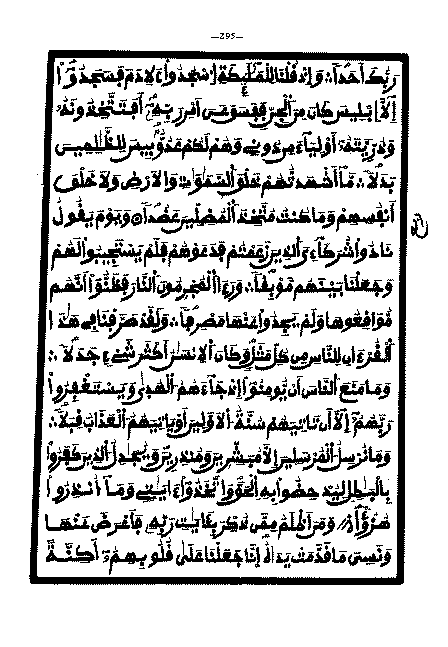 —295—
رَبُّكَ أَحَدًا وَإِذْ قُلْنَا لِلْمَلَٰٓئِكَةِ اِ۟سْجُدُواْ لِأٓدَمَ فَسَجَدُوٓاْ
إِلَّآ إِبْلِيسَ كَانَ مِنَ اَ۬لْجِنِّ فَفَسَقَ عَنَ اَمْرِ رَبِّهِۦٓ أَفَتَتَّخِذُونَهُۥ
وَذُرِّيَّتَهُۥٓ أَوْلِيَآءَ مِن دُونِے وَهُمْ لَكُمْ عَدُوُّۢ بِيسَ لِلظَّٰلِمِينَ
بَدَلًا مَّآ أَشْهَدتُّهُمْ خَلْقَ اَ۬لسَّمَٰوَٰتِ وَالَارْضِ وَلَا خَلْقَ
أَنفُسِهِمْ وَمَا كُنتُ مُتَّخِذَ اَ۬لْمُضِلِّينَ عَضُدًا وَيَوْمَ يَقُولُ
نَادُواْ شُرَكَآءِيَ اَ۬لذِينَ زَعَمْتُمْ فَدَعَوْهُمْ فَلَمْ يَسْتَجِيبُواْ لَهُمْ
وَجَعَلْنَا بَيْنَهُم مَّوْبِقًا وَرَءَا اَ۬لْمُجْرِمُونَ اَ۬لنَّارَ فَظَنُّوٓاْ أَنَّهُم
مُّوَاقِعُوهَا وَلَمْ يَجِدُواْ عَنْهَا مَصْرِفًا وَلَقَدْ صَرَّفْنَا فِے هَٰذَا
اَ۬لْقُرْءَانِ لِلنَّاسِ مِن كُلِّ مَثَلٍ وَكَانَ اَ۬لِانسَٰنُ أَكْثَرَ شَےْءٍ جَدَلًا
وَمَا مَنَعَ اَ۬لنَّاسَ أَنْ يُّومِنُوٓاْ إِذْ جَآءَهُمُ اُ۬لْهُد۪ىٰ وَيَسْتَغْفِرُواْ
رَبَّهُمُۥٓ إِلَّآ أَن تَاتِيَهُمْ سُنَّةُ اُ۬لَاوَّلِينَ أَوْ يَاتِيَهُمُ اُ۬لْعَذَابُ قِبَلًا
وَمَا نُرْسِلُ اُ۬لْمُرْسَلِينَ إِلَّا مُبَشِّرِينَ وَمُنذِرِينَ وَيُجَٰدِلُ اُ۬لذِينَ كَفَرُواْ
بِالْبَٰطِلِ لِيُدْحِضُواْ بِهِ اِ۬لْحَقَّ وَاتَّخَذُوٓاْ ءَايَٰتِے وَمَآ أُنذِرُواْ
هُزُؤًا وَمَنَ اَظْلَمُ مِمَّن ذُكِّرَ بِـَٔايَٰتِ رَبِّهِۦ فَأَعْرَضَ عَنْهَا
وَنَسِيَ مَا قَدَّمَتْ يَدَٰهُ إِنَّا جَعَلْنَا عَلَىٰ قُلُوبِهِمُۥٓ أَكِنَّةً